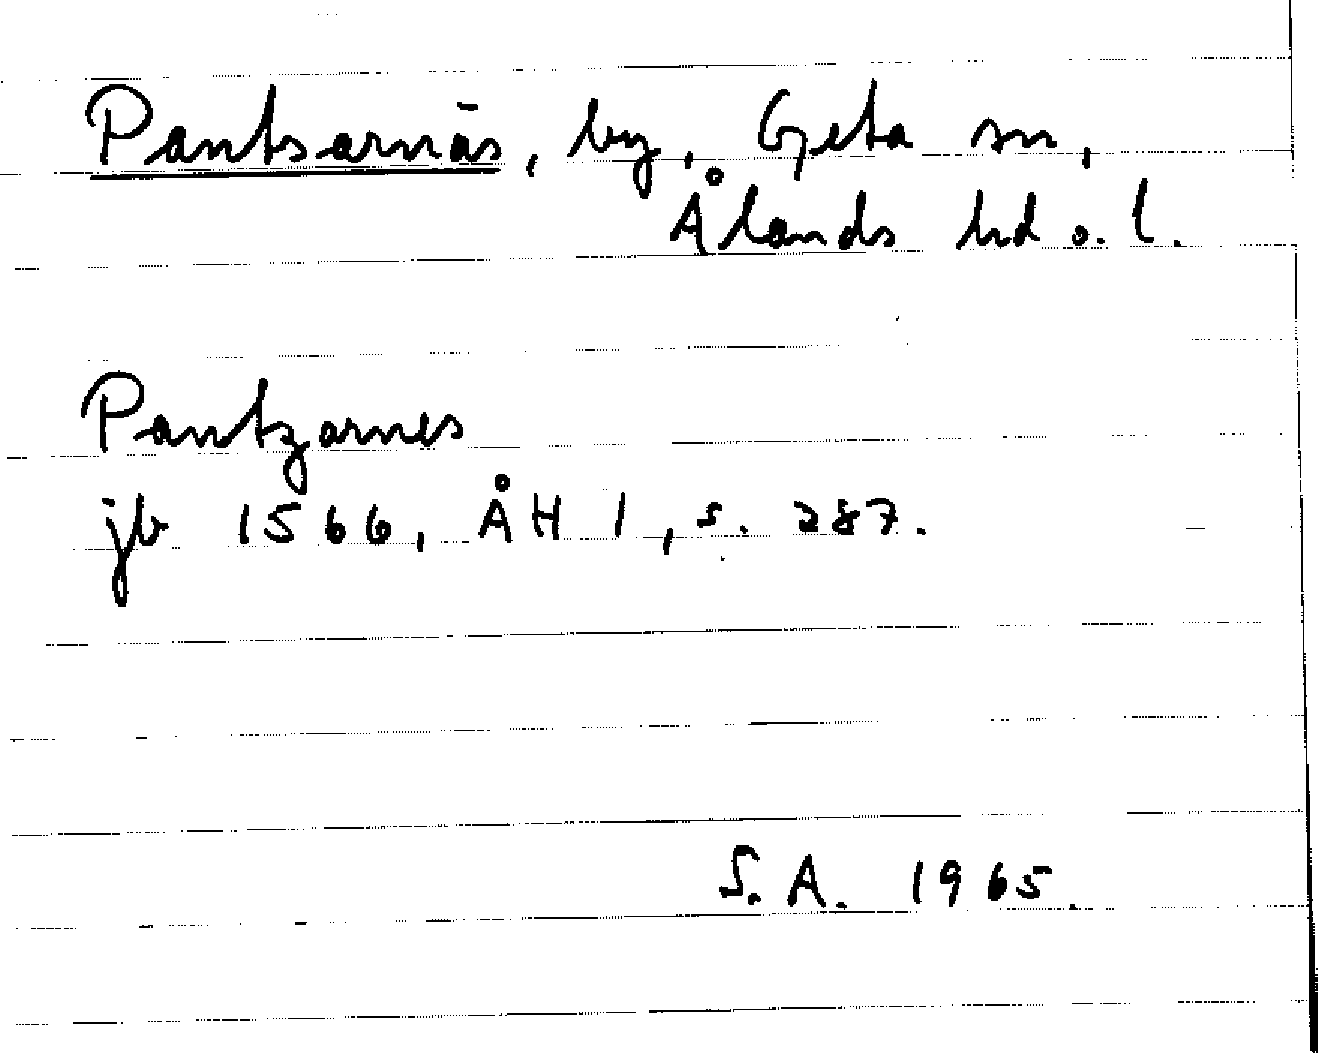 Pantsarnäs, by, Geta sn,
Ålands hd o. l.
Pantzarnes
jb 1566, ÅH 1, s. 287.
S.A. 1965.